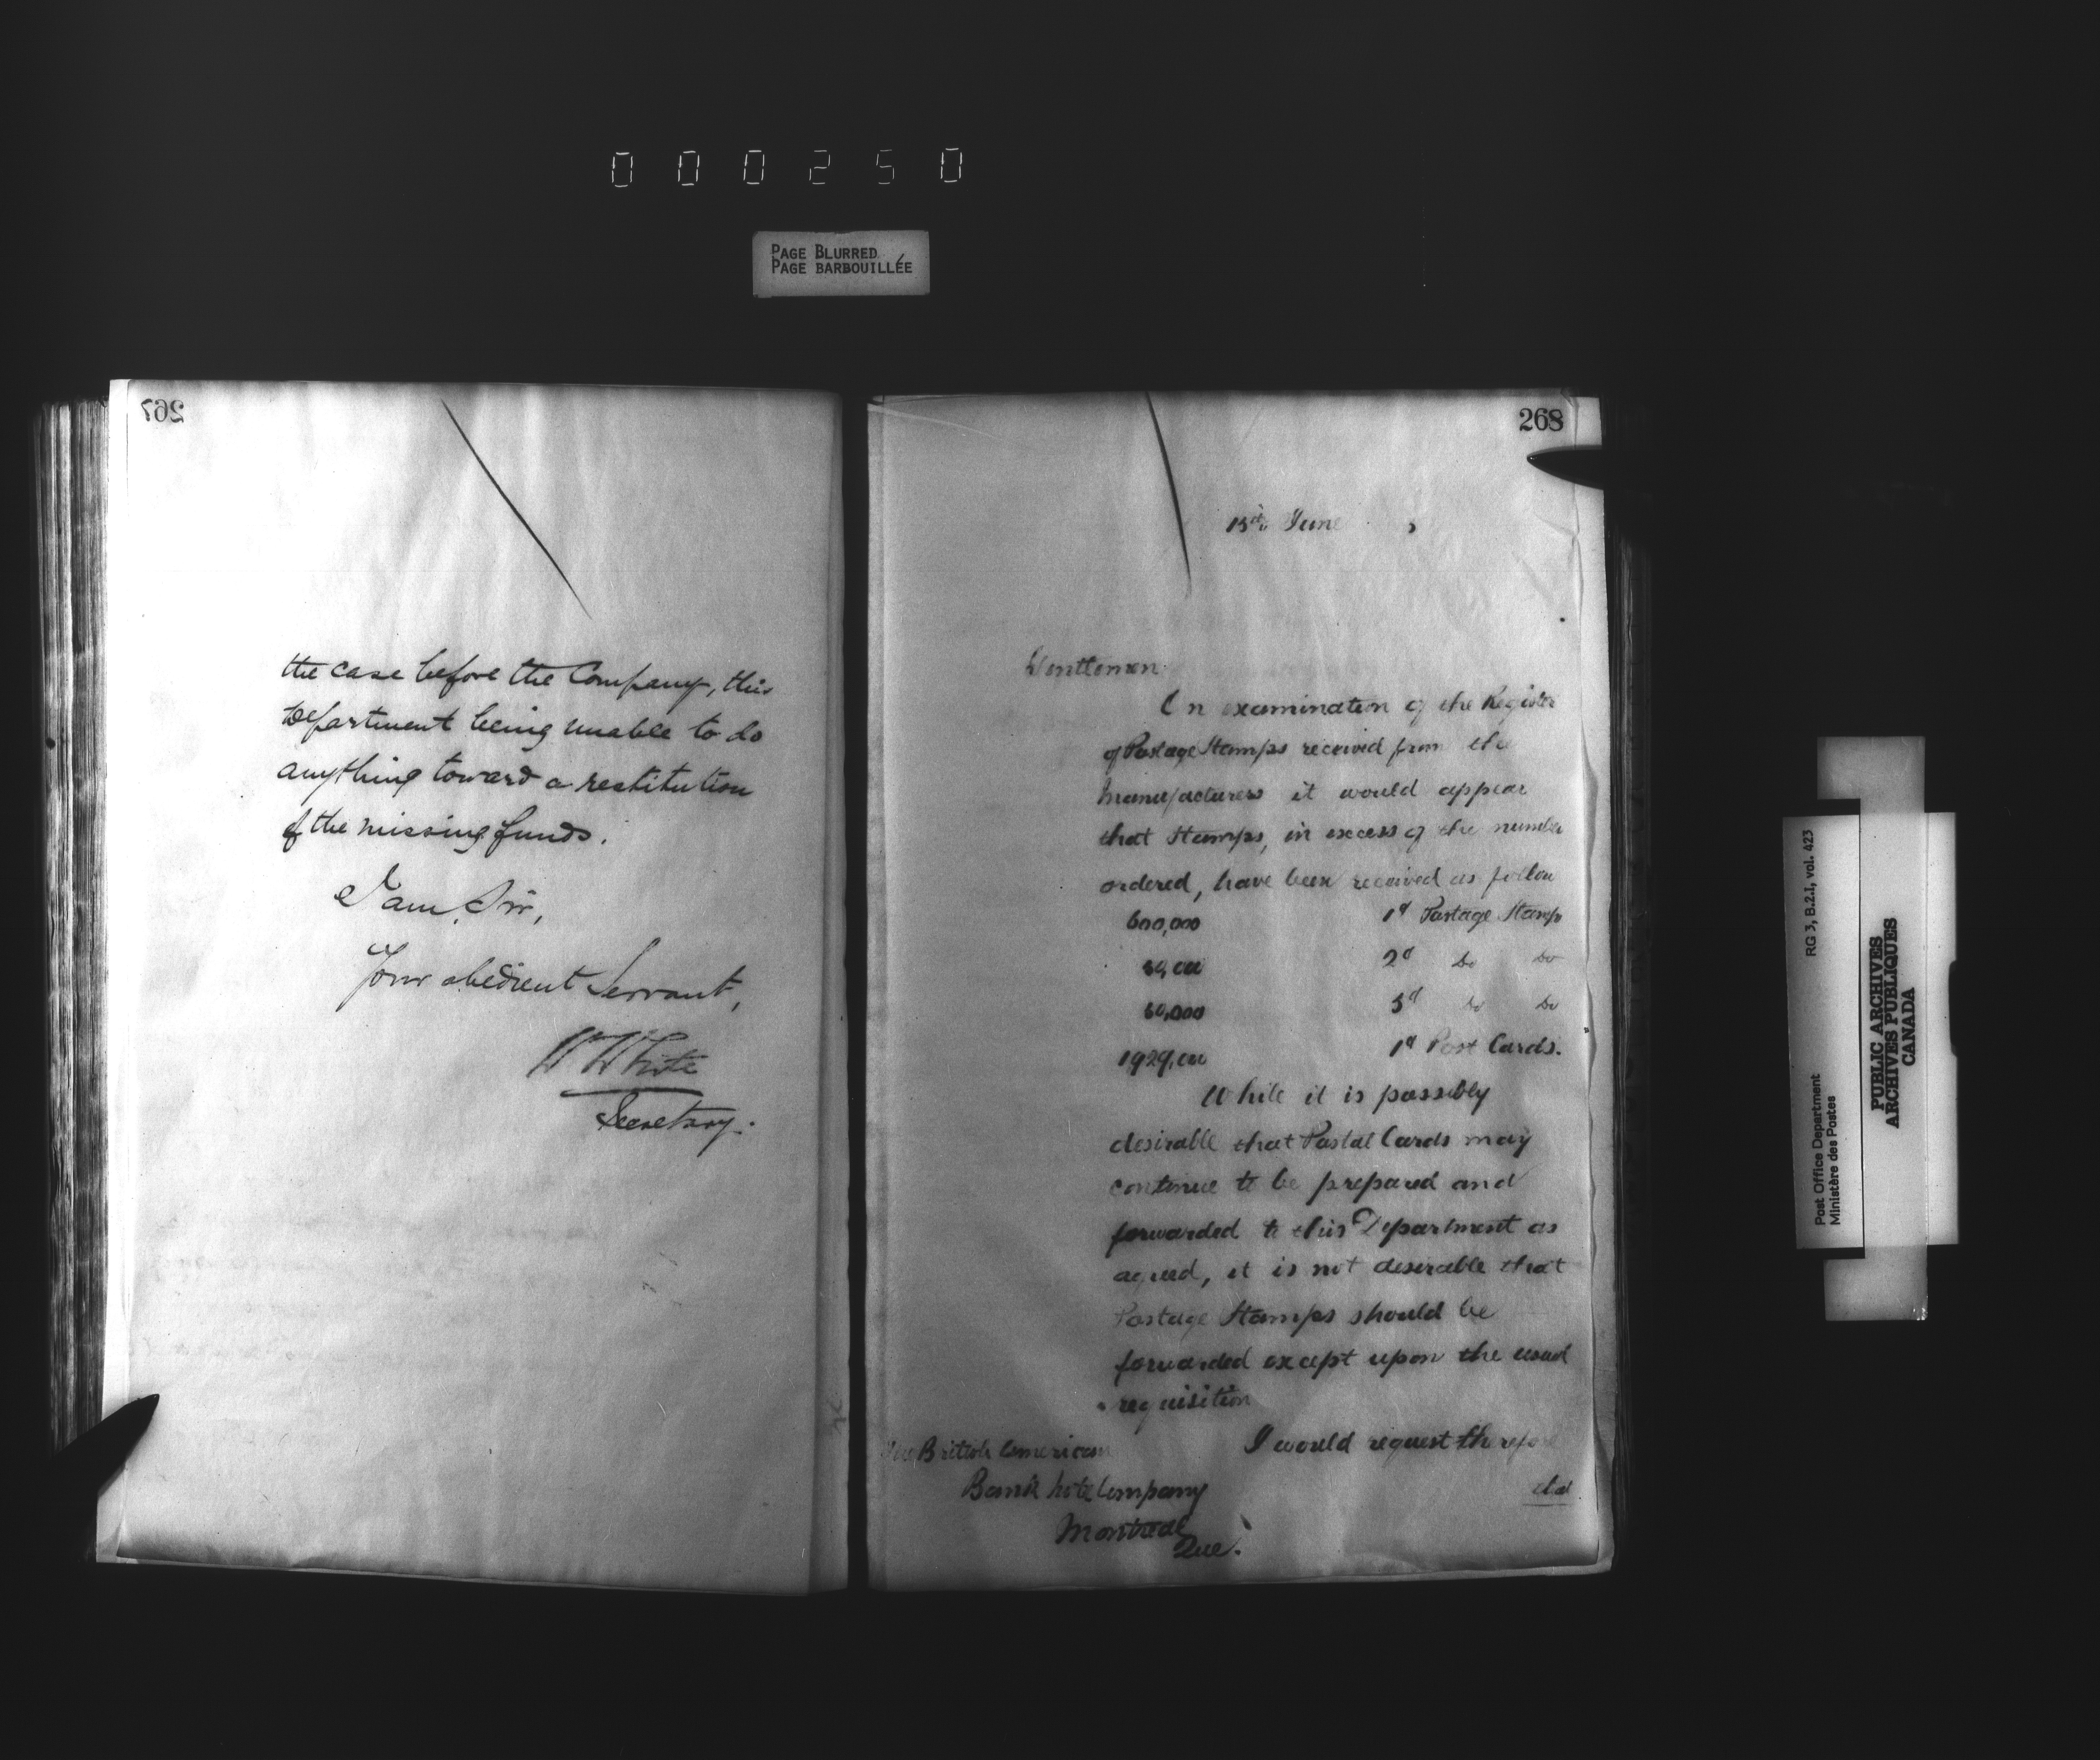 000250
PAGE BLURRED
PAGE BARBOUILLÉE
267
the case before the Company, this
Department being unable to do
anything toward a restitution
of the missing funds.
I am, Sir,
Your obedient Servant,
W White
Secretary.
268
15th June
Gentlemen
On examination of the Register
of Postage Stamps received from the
Manufacturers it would appear
that Stamps, in excess of the number
ordered, have been received as follow
600,000 1d Postage Stamps
2d Do Do
60,000 5d Do Do
1929,000 1d Post Cards.
While it is possibly
desirable that Postal Cards may
continue to be prepared and
forwarded to this Department as
agreed, it is not desirable that
Postage Stamps should be
forwarded except upon the usual
requisition
I would request therefore
that
The British American
Bank Note Company
Montreal
Que.
RG 3, B.2.1, vol. 423
Post Office Department
Ministère des Postes
PUBLIC ARCHIVES
ARCHIVES PUBLIQUES
CANADA